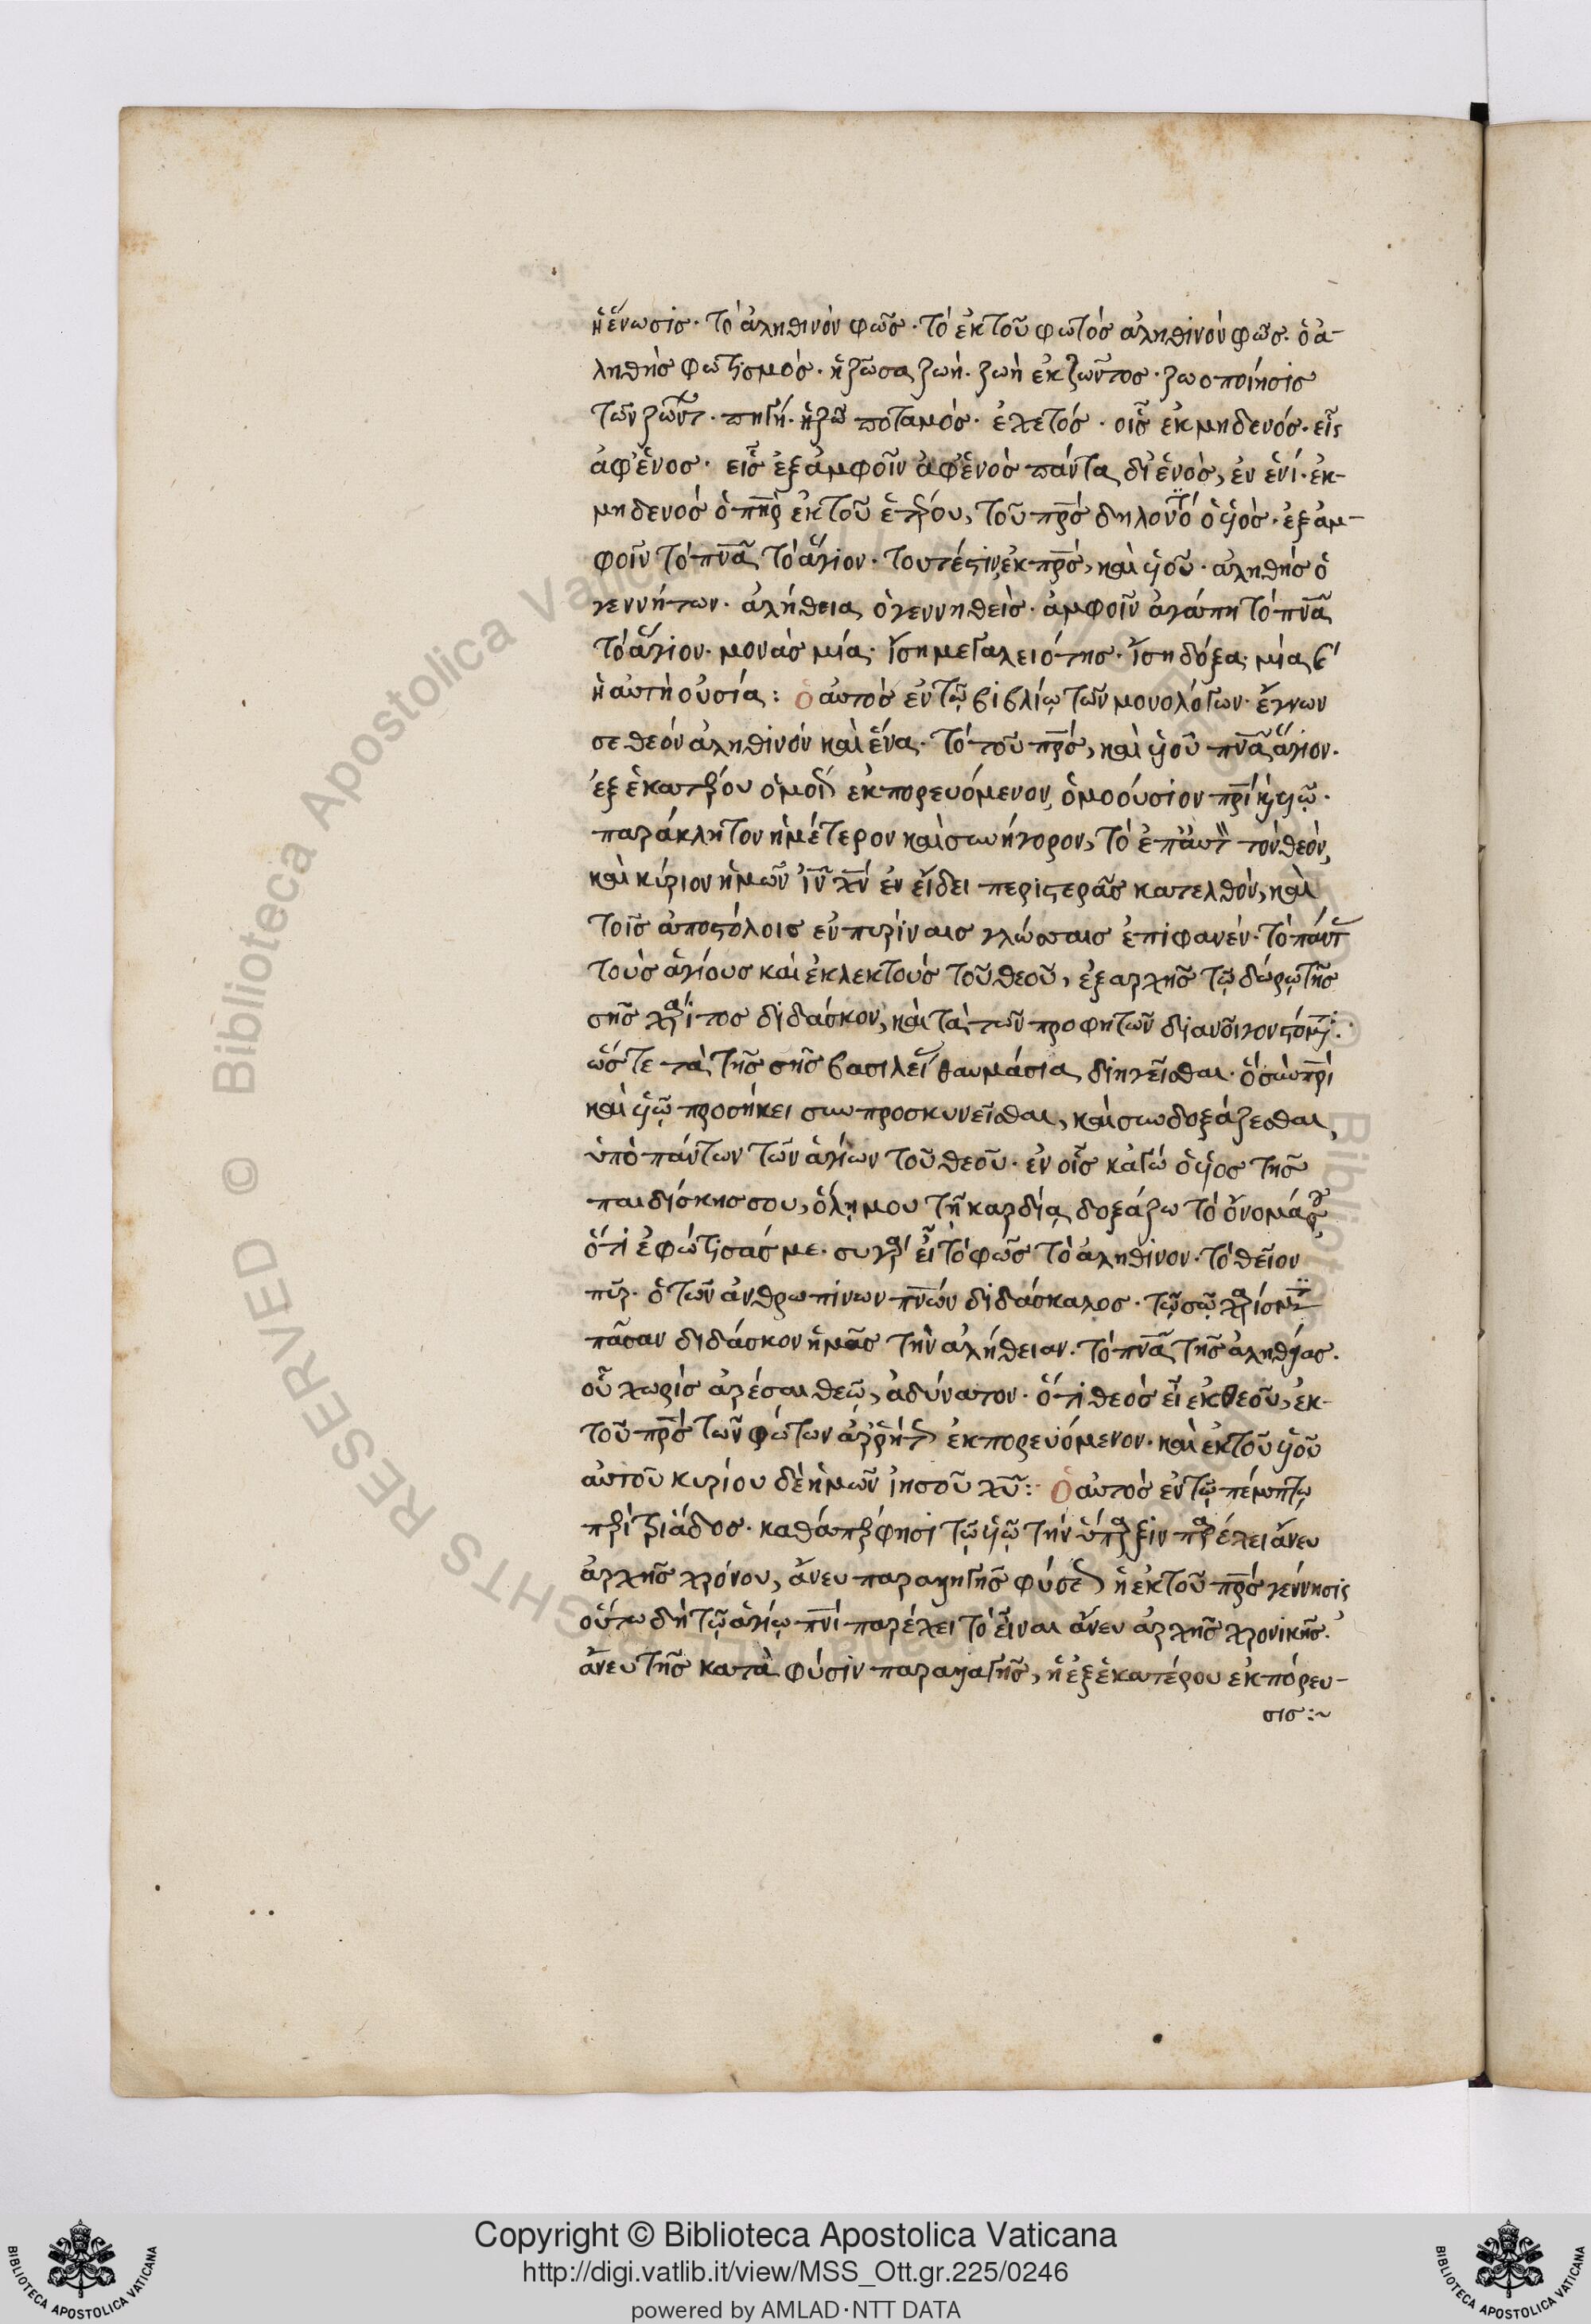 ἡ ἕνωσις· τὸ ἀληθινὸν φῶς· τὸ ἐκ τοῦ φωτὸς ἀληθινὸν φῶς· ὁ ἀ-
ληθὴς φωτισμός· ἡ ζῶσα ζωή· ζωὴ ἐκ ζῶντος· ζωοποίησις
τῶν ζώντ· πηγή· ποταμός· ὀχετός· οἷς ἐκ μηδενός· εἷς
ἀφ' ἑνός· εἷς ἐξ ἀμφοῖν ἀφ' ἑνὸς πάντα δι' ἑνὸς, ἐν ἑνί· ἐκ-
μηδενὸς ὁ πηρ ἐκ τοῦ ἑτέρου, τοῦ πρς δηλονότι ὁ ὑιός· ἐξ ἀμ-
φοῖν τὸ πνα τὸ ἅγιον· τουτέστιν ἐκ πρς, καὶ ὑιοῦ· ἀληθὴς ὁ
γεννήτων· ἀλήθεια ὁ γεννηθείς· ἀμφοῖν ἀγάπη τὸ πνα
τὸ ἅγιον· μονὰς μία· ἴση μεγαλειότης· ἴση δόξα· μία καὶ
ἡ αὐτὴ οὐσία: ὁ αὐτὸς ἐν τῷ βιβλίῳ τῶν μονολόγων· ἔγνων
σε θεὸν ἀληθινὸν καὶ ἕνα· τὸ τοῦ πρς, καὶ ὑιοῦ πνα ἅγιον·
ἐξ ἑκατέρου ὁμοῦ ἐκπορευόμενον, ὁμοούσιον πρι καὶ ὑιῷ·
παράκλητον ἡμέτερον καὶ συνήγορον, τὸ ἐπ' αὐτὸν τὸν θεὸν,
καὶ κύριον ἡμῶν ιν χν ἐν εἴδει περιστερᾶς κατελθὸν, καὶ
τοῖς ἀποστόλοις ἐν πυρίναις γλώσσαις ἐπιφανέν· τὸ πάντ
τοὺς ἁγίους καὶ ἐκλεκτοὺς τοῦ θεοῦ, ἐξ ἀρχῆς τῷ δώρῳ τῆς
σῆς χάριτος διδάσκον, καὶ τὰ τῶν προφητῶν διανοῖγον στόματα·
ὥστε τὰ τῆς σῆς βασιλείας θαυμάσια διηγεῖσθαι· ὃ σὺν πρι
καὶ ὑιῷ προσήκει συμπροσκυνεῖσθαι, καὶ συνδοξάζεσθαι,
ὑπὸ πάντων τῶν ἁγίων τοῦ θεοῦ· ἐν οἷς κἀγὼ ὁ ὑιὸς τῆς
παιδίσκης σου, ὅλῃ μου τῇ καρδίᾳ δοξάζω τὸ ὄνομά σου
ὅτι ἐφώτισάς με· σὺ γὰρ εἶ τὸ φῶς τὸ ἀληθινὸν· τὸ θεῖον
πῦρ· ὁ τῶν ἀνθρωπίνων πνων διδάσκαλος· τῷ σῷ χρίσματι
πᾶσαν διδάσκον ἡμᾶς τὴν ἀλήθειαν· τὸ πνα τῆς ἀληθείας·
οὗ χωρὶς ἀρέσαι θεῷ, ἀδύνατον· ὅτι θεὸς εἶ ἐκ θεοῦ, ἐκ-
τοῦ πρς τῶν φώτων ἀρρήτως ἐκπορευόμενον· καὶ ἐκ τοῦ ὑιοῦ
αὐτοῦ κυρίου δὲ ἡμῶν ἰησοῦ χυ: ὁ αὐτὸς ἐν τῷ πέμπτῳ
περὶ τριάδος· καθάπερ φησὶ τῷ ὑιῷ τὴν ὕπαρξιν παρέχει ἄνευ
ἀρχῆς χρόνου, ἄνευ παραλλαγῆς φύσεως ἡ ἐκ τοῦ πρς γέννησις
οὕτω δὴ τῷ ἁγίῳ πνι παρέχει τὸ εἶναι ἄνευ ἀρχῆς χρονικῆς·
ἄνευ τῆς κατὰ φύσιν παραλλαγῆς, ἡ ἐξ ἑκατέρου ἐκπόρευ-
σις:~
Biblioteca Apostolica Vaticana
RIGHTS RESERVED © Biblioteca Apostolica Vaticana
Copyright © Biblioteca Apostolica Vaticana
http://digi.vatlib.it/view/MSS_Ott.gr.225/0246
powered by AMLAD·NTT DATA
BIBLIOTECA APOSTOLICA VATICANA
BIBLIOTECA APOSTOLICA VATICANA